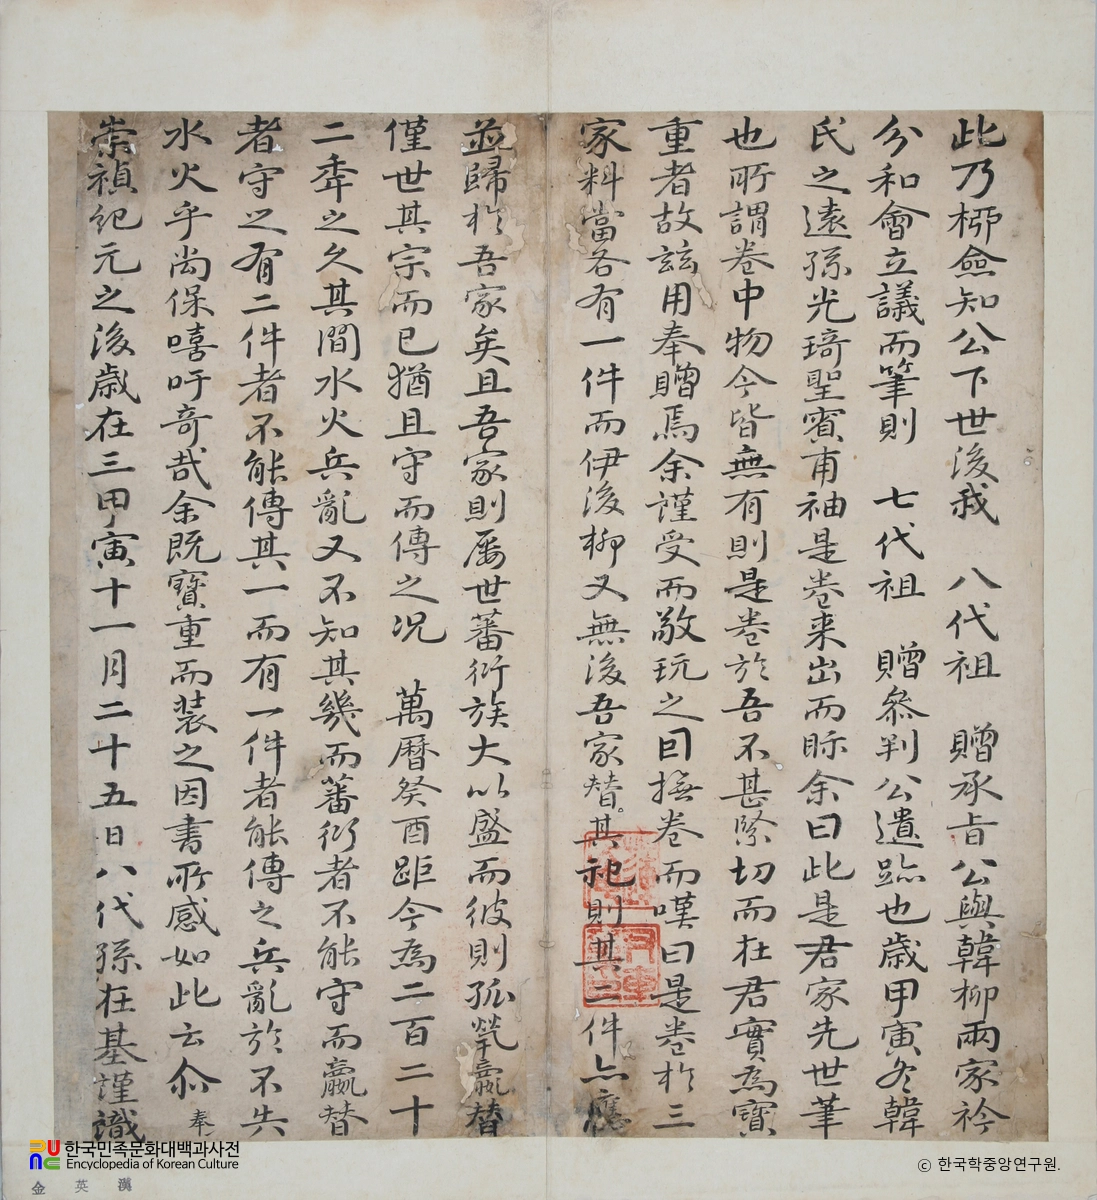 此乃柳僉知公下世後我 八代祖 贈承旨公與韓柳兩家衿
分和會立議而筆則 七代祖 贈參判公遺跡也歲甲寅冬韓
氏之遠孫光琦聖賓甫袖是卷來出而眎余曰此是君家先世筆
也所謂卷中物今皆無有則是卷於吾不甚緊切而在君實爲寶
重者故玆用奉贈焉余謹受而敬玩之因撫卷而嘆曰是卷於三
家料當各有一件而伊後柳又無後吾家替其祀則其二件亦應
並歸於吾家矣且吾家則屢世蕃衍族大以盛而彼則孤煢嬴替
僅世其宗而已猶且守而傳之况 萬曆癸酉距今爲二百二十
二秊之久其間水火兵亂又不知其幾而蕃衍者不能守而嬴替
者守之有二件者不能傳其一而有一件者能傳之兵亂於不失
水火乎尙保嘻吁奇哉余旣寶重而裝之因書所感如此云尒 奉
崇禎紀元之後歲在三甲寅十一月二十五日八代孫在基謹識
한국민족문화대백과사전
Encyclopedia of Korean Culture
© 한국학중앙연구원.
金 英 漢